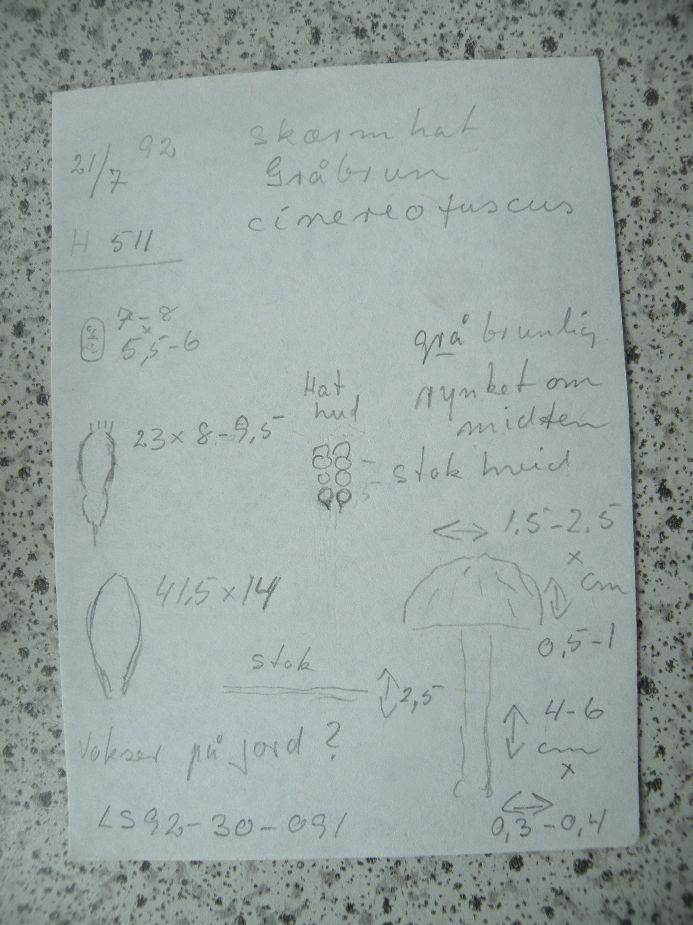 21/7 92
skærmhat
Gråbrun
cinereofuscus
H 511
7-8
x
5,5-6
grå brunlig
rynket om
midten
stok hvid
Hat
hud
23 x 8-9,5
5
1,5-2,5
x
cm
0,5-1
41,5 x 14
stok
2,5
4-6
cm
x
0,3-0,4
Vokser på jord ?
LS92-30-091